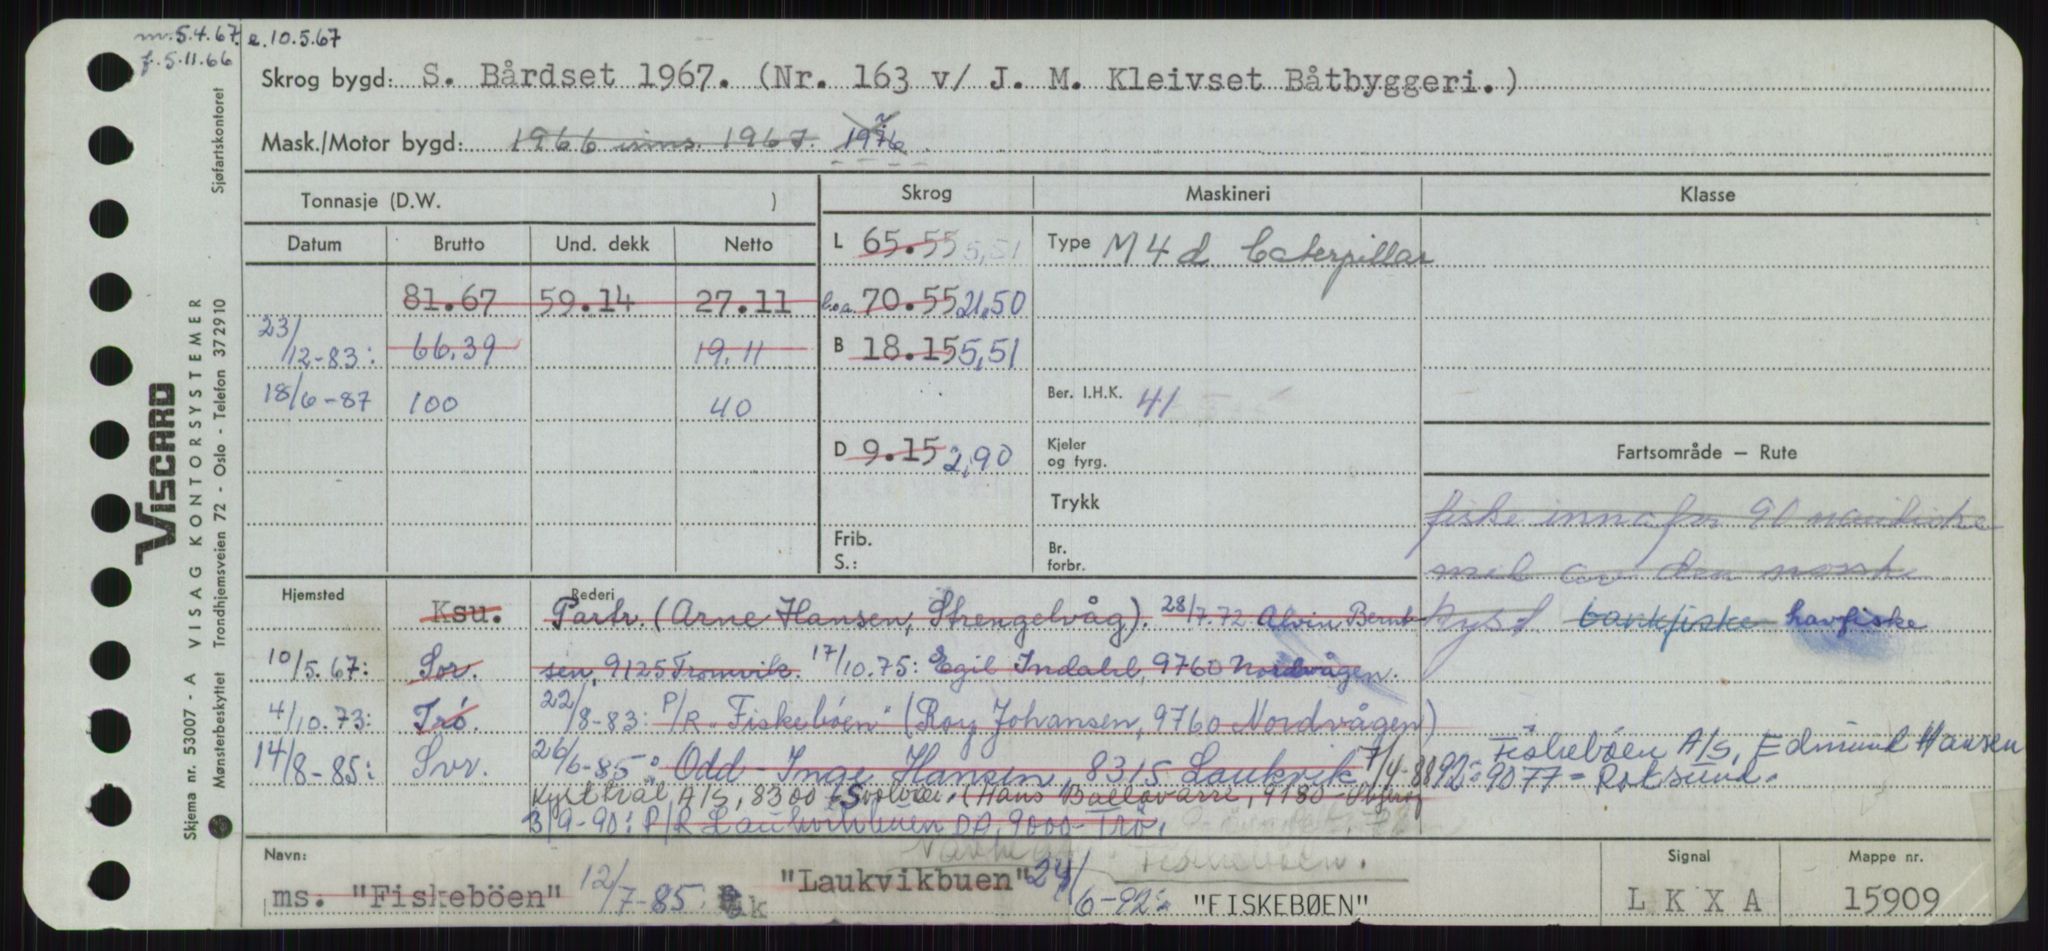 m. 5.4.67. e.10.5.67
f. 5.11.66
Skrog bygd: S. Bårdset 1967. (Nr. 163 v/ J. M. Kleivset Båtbyggeri.)
Mask./Motor bygd: 1966 inns. 1967. 1976
Tonnasje (D.W. )
Skrog
Maskineri
Klasse
Datum Brutto Und. dekk Netto
L 65.55 5,51
Type M4d Caterpillar
81.67 59.14 27.11
l.o.a. 70.55 21,50
23/12-83: 66.39 19.11
B 18.15 5,51
18/6-87 100 40
Ber. I.H.K. 41
D 9.15 2,90
Kjeler og fyrg.
Fartsområde — Rute
Trykk
fiske innafor 90 nautiske
Frib.
S.:
Br. forbr.
mil av den norske
kyst bankfiske havfiske
Hjemsted
Rederi
Ksu. Partr. (Arne Hansen, Strengelvåg). 28/7.72 Alvin Bernt-
10/5.67: Sor. sen, 9125 Tromvik. 17/10.75: Egil Indahl, 9760 Nordvågen.
4/10.73: Trö. 22/8-83: P/R "Fiskebøen" (Roy Johansen, 9760 Nordvågen)
14/8-85: Svr. 26/6-85: Odd-Inge Hansen, 8315 Laukvik 7/4-88
92: Fiskebøen A/S, Edmund Hansen
9077 - Roksund.
Kysttrål A/S, 8300 Svolvær. (Hans 9180
3/9-90: P/R Laukvikbuen DA, 9000-Trö.
Navn:
Fiskebøen.
ms. "Fiskeböen" 12/7-85: k "Laukvikbuen" 24/6-92: "FISKEBØEN"
Signal
L K X A
Mappe nr.
15909
Sjøfartskontoret
VISCARD
VISAG KONTORSYSTEMER
Trondhjemsveien 72 - Oslo - Telefon 372910
Skjema nr. 53007 - A
Mønsterbeskyttet